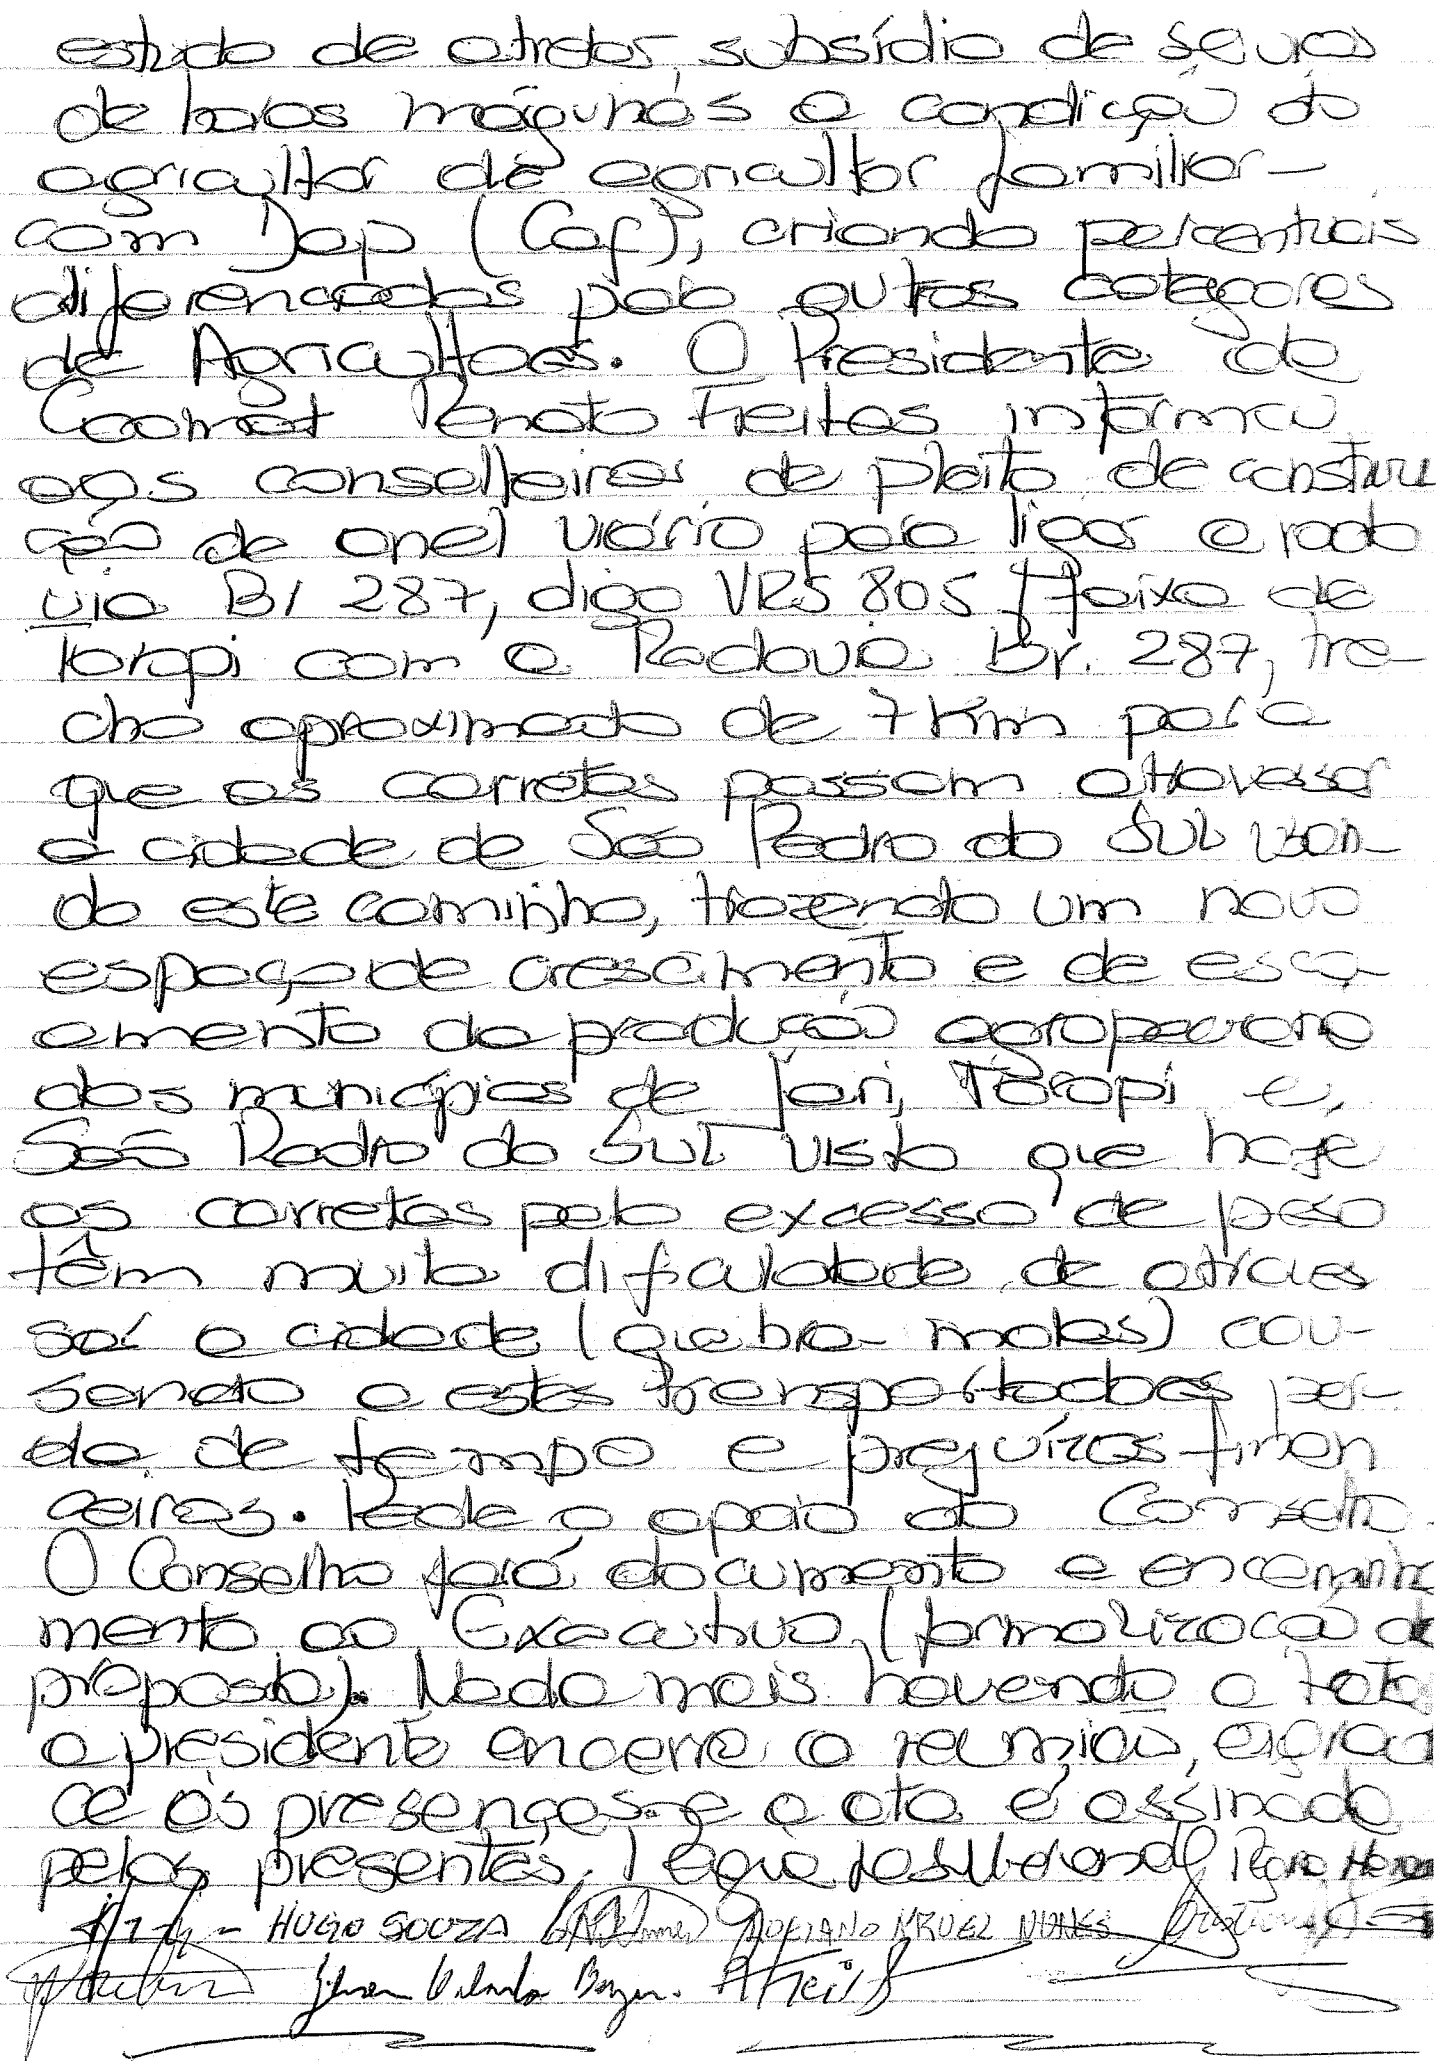 estudo de atrelar subsídio de serviços
de horas máquinas a condição do
agricultor de agricultor familiar -
com Dap (Caf), criando percentuais
diferenciados para outras categorias
de Agricultores. O Presidente da
Coomat Renato Freitas informa
aos conselheiros de pleito de constru
ção de anel viário para ligar a rodo
via Br 287, digo VRS 805 Faixa de
Toropi com a Rodovia Br. 287, tre-
cho aproximado de 7 Km para
que as carretas possam atravessar
a cidade de São Pedro do SUL usan-
do este caminho, trazendo um novo
espaço de crescimento e de esco-
amento da produção agropecuária
dos municípios de Jari, Toropi e,
São Pedro do SUL visto que hoje
as carretas pelo excesso de peso
têm muita dificuldade de atraves
sar a cidade (quebra-molas) cau-
sando a estes transportadores per-
da de tempo e prejuízos finan
ceiros. Pede o apoio do Conselho.
O Conselho fará documento e encaminha
mento ao Executivo (formalização da
proposta). Nada mais havendo a tratar
o presidente encerra a reunião, agrade
ce as presenças e a ata é assinada
pelos presentes.
HUGO SOUZA ADRIANO KRUEL NUNES